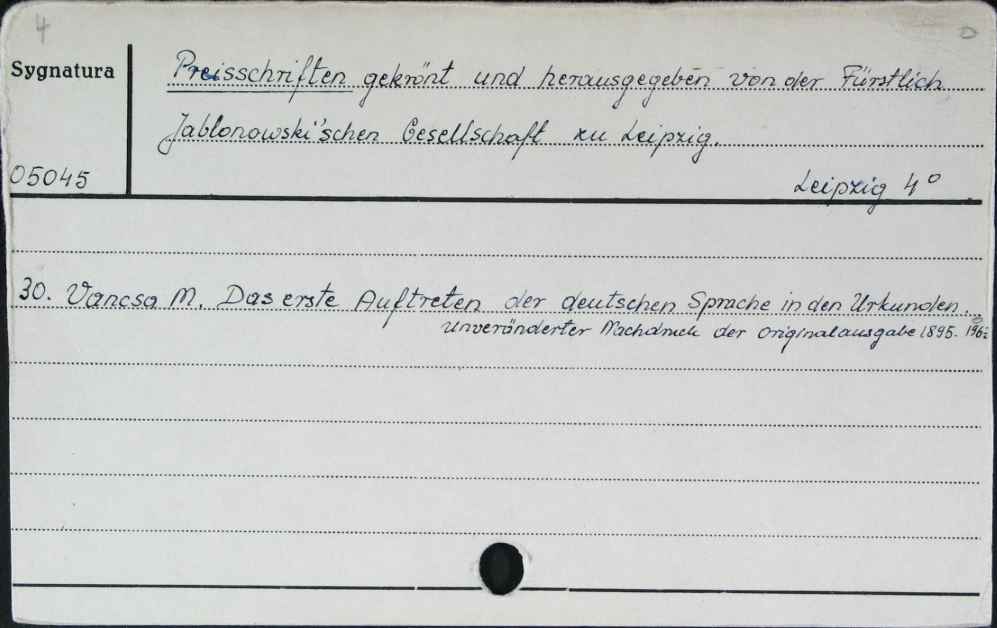 4
Sygnatura
Preisschriften gekrönt und herausgegeben von der Fürstlich
Jablonowski'schen Gesellschaft zu Leipzig.
05045
Leipzig 4°
30. Vancsa M. Das erste Auftreten der deutschen Sprache in den Urkunden...
Unveränderter Nachdruck der Originalausgabe 1895.